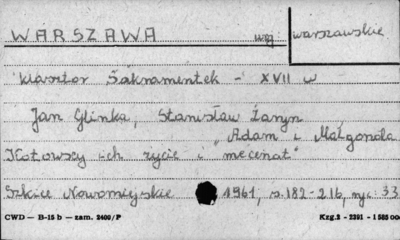 WARSZAWA woj. warszawskie
Klasztor Sakramentek - XVII w
Jan Glinka, Stanisław Żaryn
"Adam i Małgorzata
Kotowscy ich życie i mecenat"
Szkice Nowomiejskie 1961, s. 182-216, ryc. 33
CWD — B-15 b — zam. 2400/P Kzg. 2 - 2291 - 1 585 00